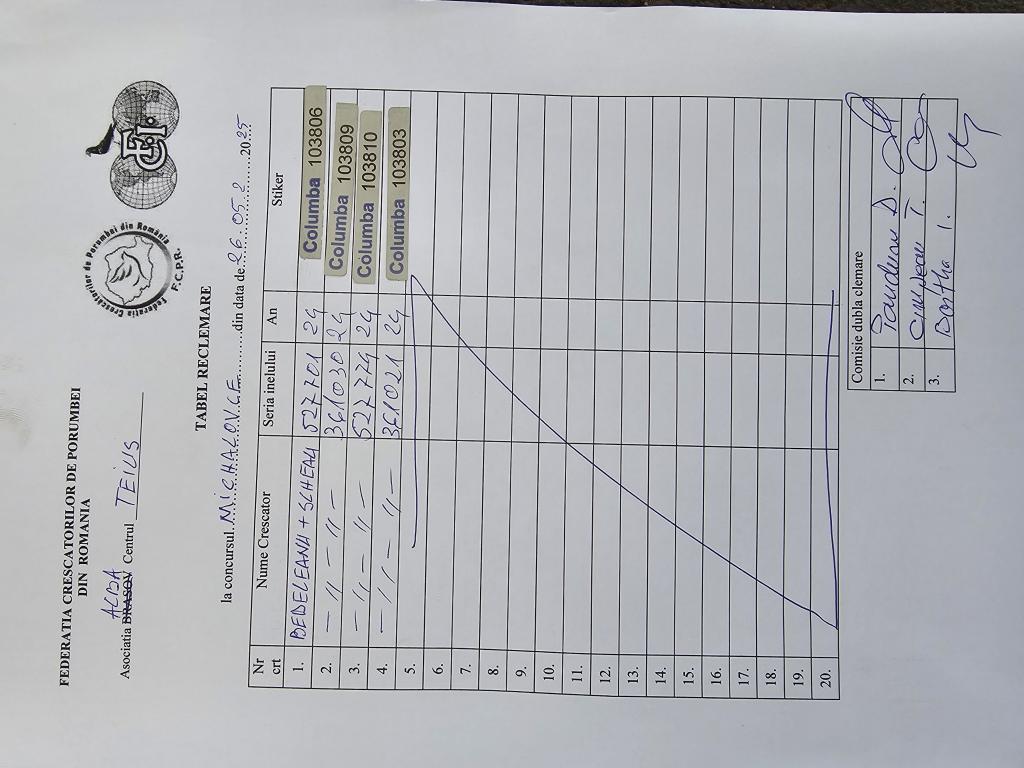 FEDERATIA CRESCATORILOR DE PORUMBEI
DIN ROMANIA
ALBA
Asociatia BRASOV Centrul TEIUS
Federatia Crescatorilor de Porumbei din România
F.C.P.R.
FCI
TABEL RECLEMARE
la concursul MICHALOVCE din data de 26.05. 2025
Nr crt Nume Crescator Seria inelului An Stiker
1. BEDELEANU + SCHEAU 527701 24 Columba 103806
2. -"-"- 361030 24 Columba 103809
3. -"-"- 527774 24 Columba 103810
4. -"-"- 361021 24 Columba 103803
5.
6.
7.
8.
9.
10.
11.
12.
13.
14.
15.
16.
17.
18.
19.
20.
Comisie dubla clemare
1. D.
2. T.
3. Bartha I.